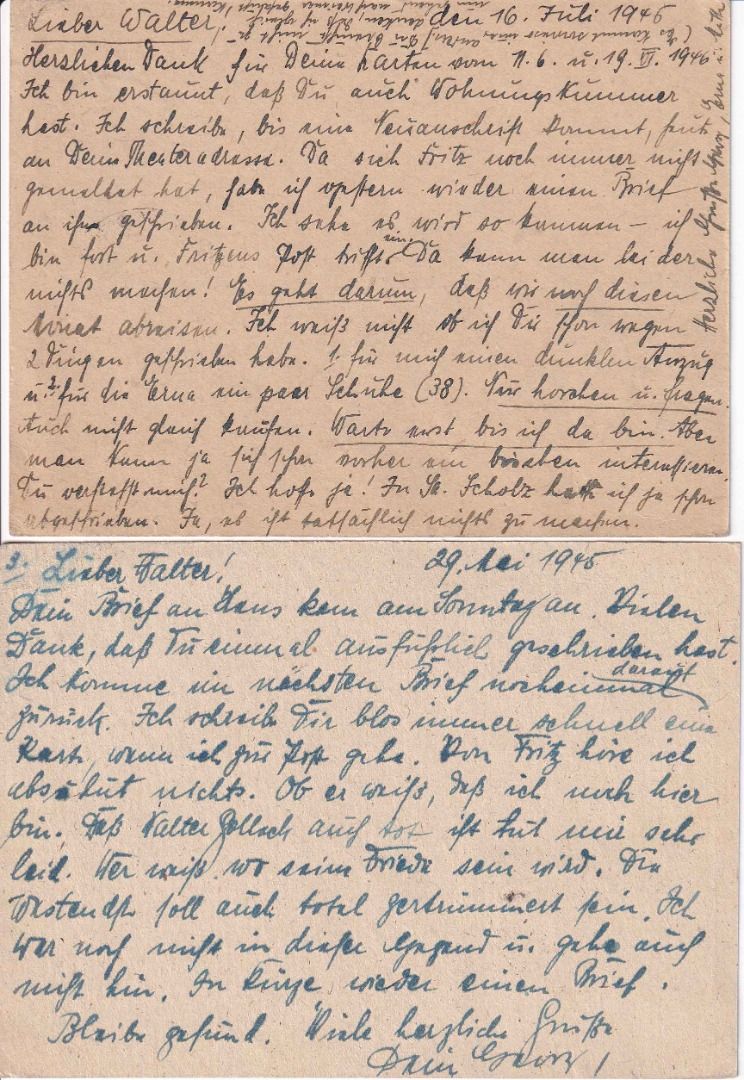 Lieber Walter! den 16. Juli 1946
Herzlichen Dank für Deine Karten vom 11.6. u. 19. VI. 1946
Ich bin erstaunt, daß Du auch Wohnungskummer
hast. Ich schreibe, bis eine Neuanschrift kommt,
an Deine Theateradresse. Da sich Fritz noch immer nicht
gemeldet hat, habe ich gestern wieder einen Brief
an ihn geschrieben. Ich sehe es wird so kommen – ich
bin fort u. Fritzens Post trifft ein. Da kann man leider
nichts machen! Es geht darum, daß wir noch diesen
Monat abreisen. Ich weiß nicht ob ich Dir schon wegen
2 Dingen geschrieben habe. 1. für mich einen dunklen Anzug
u. 2. für die Erna ein paar Schuhe (38). Nur horchen u. fragen.
Auch nicht gleich kaufen. Warte erst bis ich da bin. Aber
man kann ja sich schon vorher ein bisschen interessieren.
Du verstehst mich? Ich hoffe ja! In Scholz ich ja schon
abgeschrieben. Ja, es ist tatsächlich nichts zu machen.
Herzliche Grüße Georg, Erna u.
3. Lieber Walter! 29. Mai 1946
Dein Brief an Hans kam am Sonntag an. Vielen
Dank, daß Du einmal ausführlich geschrieben hast.
Ich komme im nächsten Brief nocheinmal darauf
zurück. Ich schreibe Dir blos immer schnell eine
Karte, wenn ich zur Post gehe. Von Fritz höre ich
absolut nichts. Ob er weiß, daß ich noch hier
bin. Daß Walter auch tot ist tut mir sehr
leid. Wer weiß wo seine Friede sein wird. Die
Westendstr soll auch total zertrümmert sein. Ich
war noch nicht in dieser Gegend u. gehe auch
nicht hin. In Kürze wieder einen Brief.
Bleibe gesund. Viele herzliche Grüße
Dein Georg!